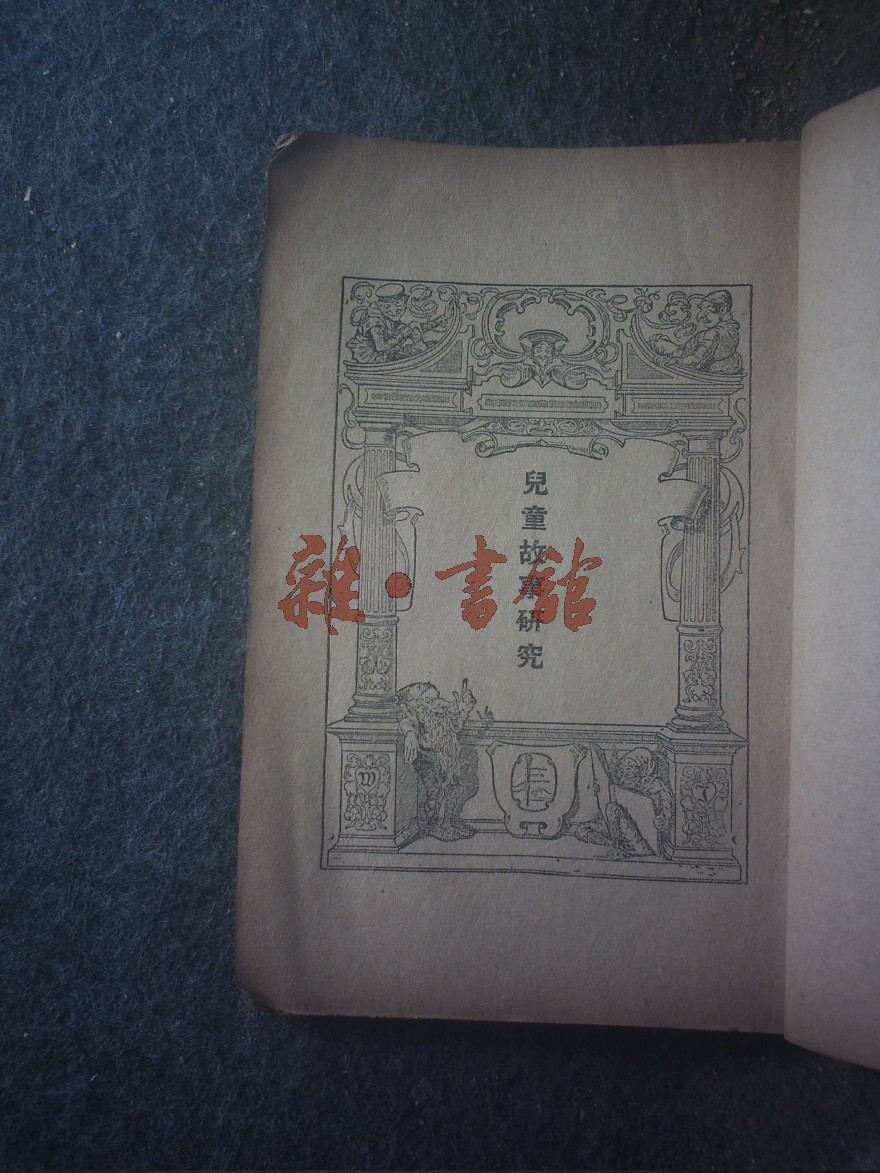 兒童故事研究
雜·書館